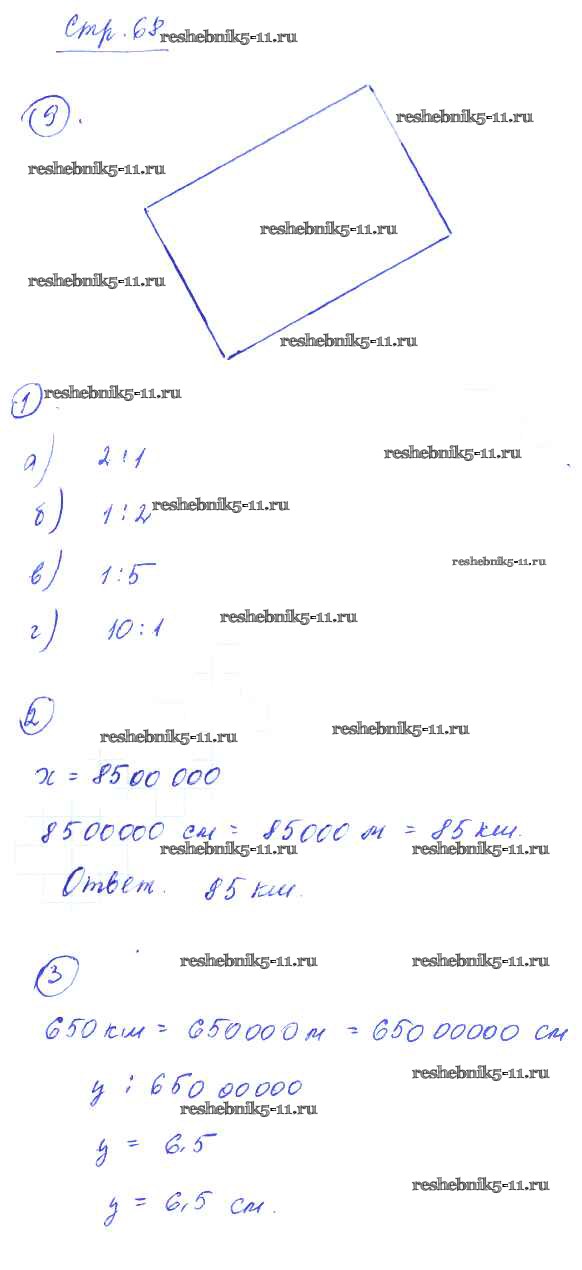 Стр. 68
reshebnik5-11.ru
9.
reshebnik5-11.ru
reshebnik5-11.ru
reshebnik5-11.ru
reshebnik5-11.ru
reshebnik5-11.ru
1
reshebnik5-11.ru
а) 2:1
reshebnik5-11.ru
б) 1:2
reshebnik5-11.ru
в) 1:5
reshebnik5-11.ru
г) 10:1
reshebnik5-11.ru
2
reshebnik5-11.ru
reshebnik5-11.ru
x = 8500 000
8500000 см = 85000 м = 85 км.
reshebnik5-11.ru
reshebnik5-11.ru
Ответ. 85 км.
3
reshebnik5-11.ru
reshebnik5-11.ru
650 км = 650000 м = 65000000 см
reshebnik5-11.ru
y : 65000000
reshebnik5-11.ru
y = 6.5
reshebnik5-11.ru
y = 6,5 см.